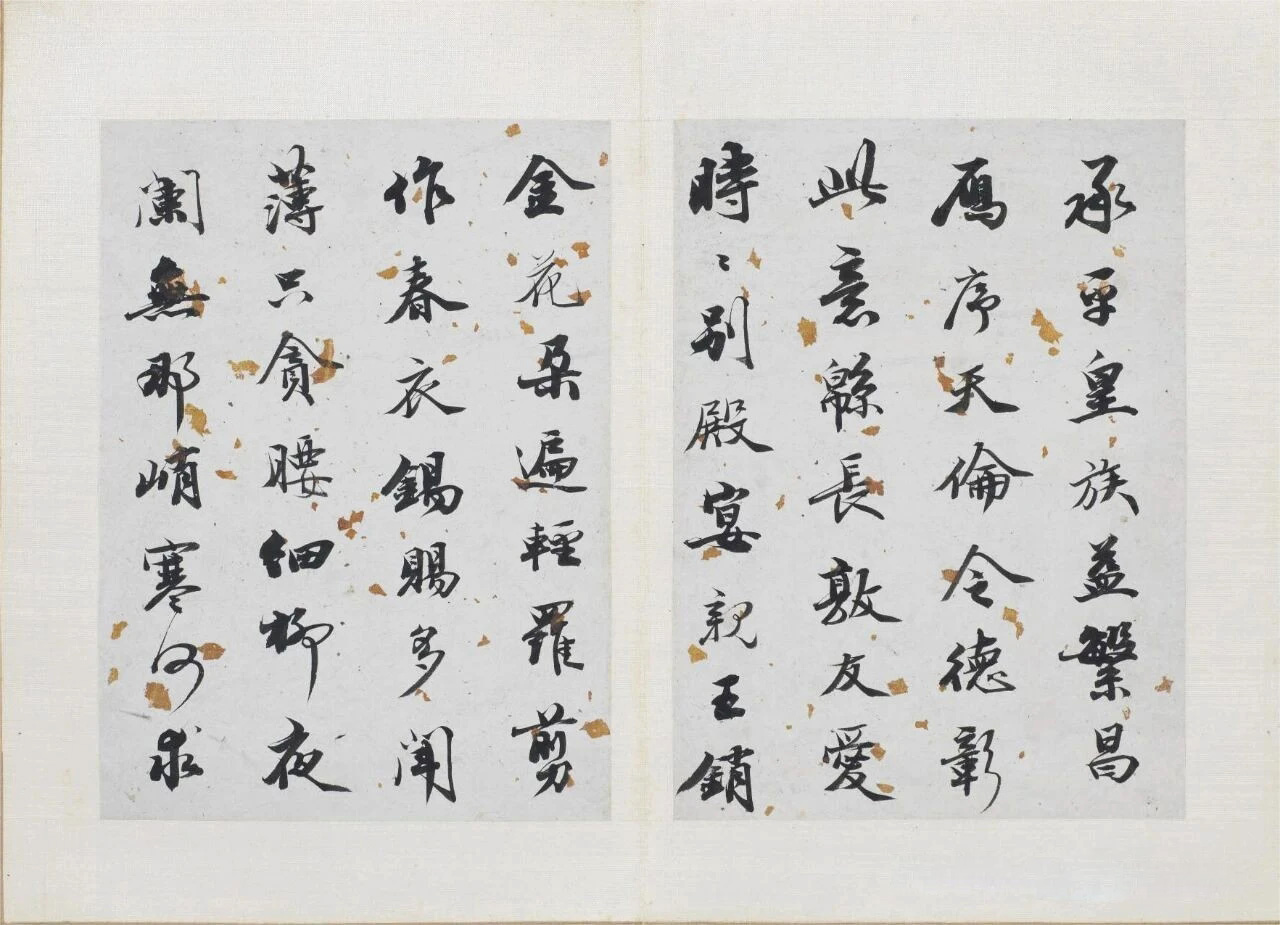 承平皇族益繁昌
鴈序天倫令德彰
此意緜長敦友愛
時〻別殿宴親王銷
金花朶遍輕羅剪
作春衣錫賜多聞
薄只貪腰細柳夜
闌無那峭寒何求